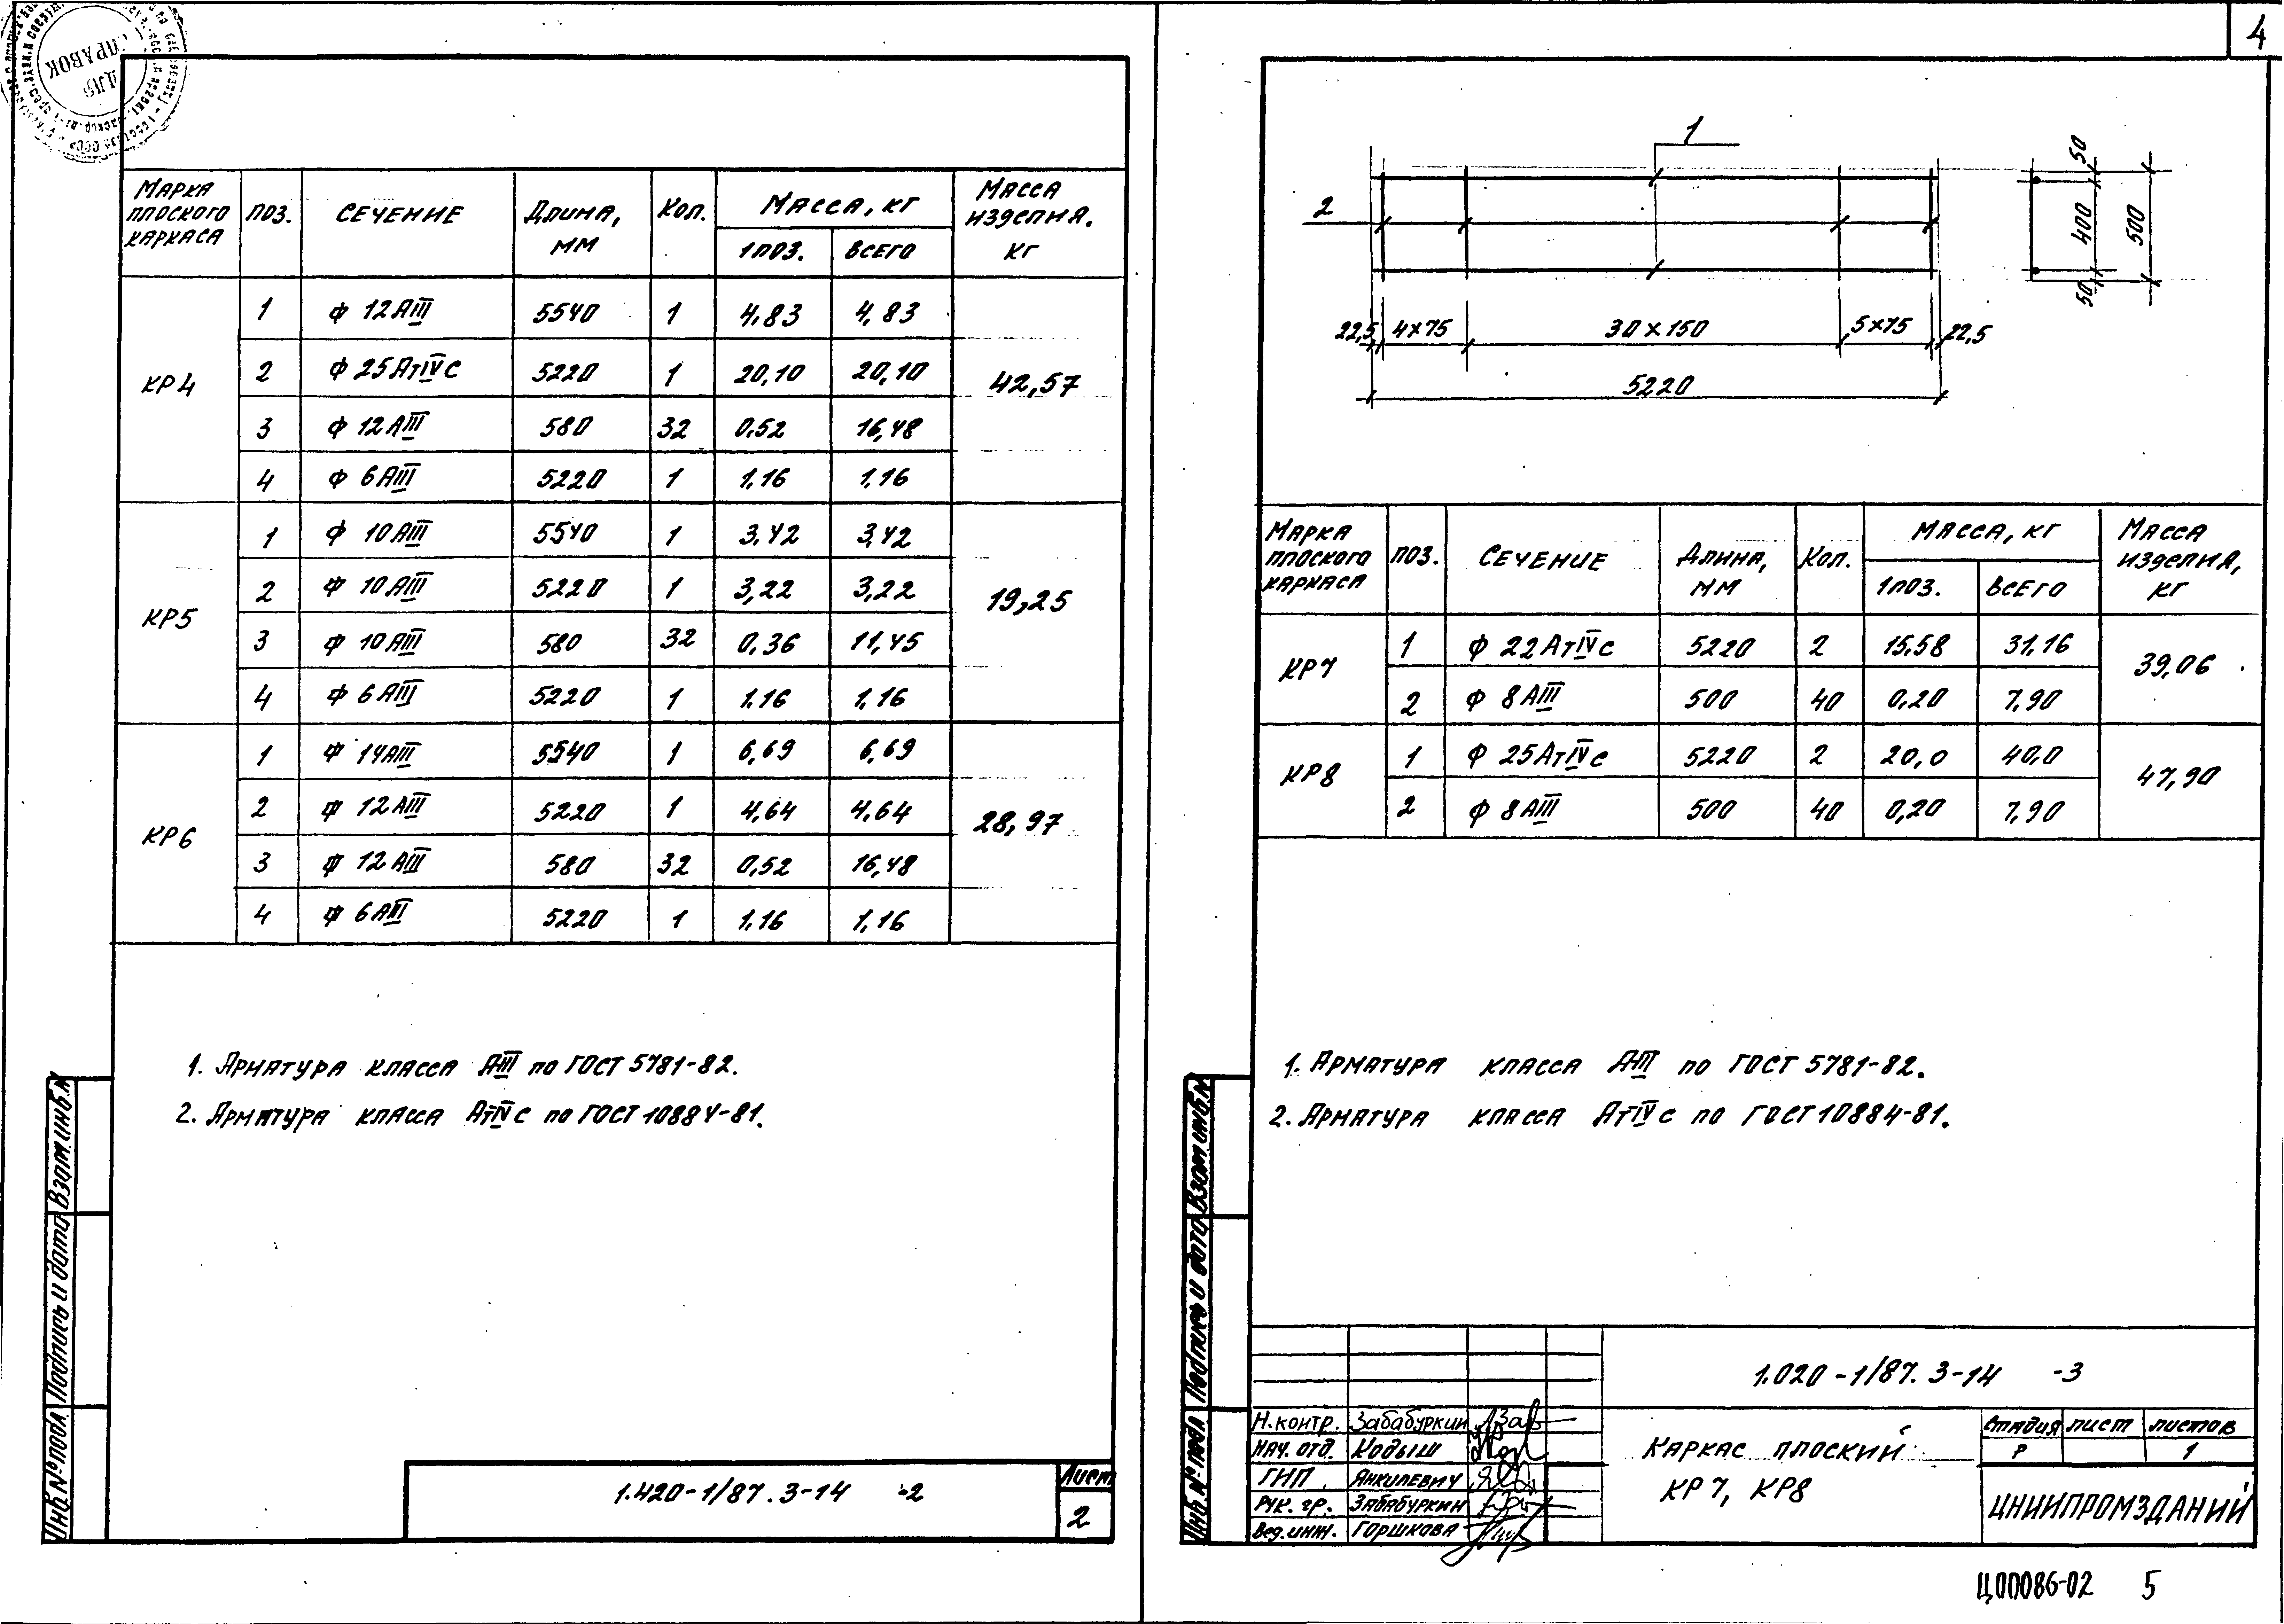 ДЛЯ
СПРАВОК
4
МАРКА ПЛОСКОГО КАРКАСА | ПОЗ. | СЕЧЕНИЕ | ДЛИНА, ММ | КОЛ. | МАССА, КГ | МАССА ИЗДЕЛИЯ, КГ
1 ПОЗ. | ВСЕГО
КР4 | 1 | Ф 12АIII | 5540 | 1 | 4,83 | 4,83 | 42,57
2 | Ф 25АтIVС | 5220 | 1 | 20,10 | 20,10
3 | Ф 12АIII | 580 | 32 | 0,52 | 16,48
4 | Ф 6АIII | 5220 | 1 | 1,16 | 1,16
КР5 | 1 | Ф 10АIII | 5540 | 1 | 3,42 | 3,42 | 19,25
2 | Ф 10АIII | 5220 | 1 | 3,22 | 3,22
3 | Ф 10АIII | 580 | 32 | 0,36 | 11,45
4 | Ф 6АIII | 5220 | 1 | 1,16 | 1,16
КР6 | 1 | Ф 14АIII | 5540 | 1 | 6,69 | 6,69 | 28,97
2 | Ф 12АIII | 5220 | 1 | 4,64 | 4,64
3 | Ф 12АIII | 580 | 32 | 0,52 | 16,48
4 | Ф 6АIII | 5220 | 1 | 1,16 | 1,16
1. АРМАТУРА КЛАССА АIII по ГОСТ 5781-82.
2. АРМАТУРА КЛАССА АтIVС по ГОСТ 10884-81.
Инв.№ подл. Подпись и дата Взам.инв.№
1.420-1/87.3-14 -2
Лист
2
1
2
22,5 4х75 30х150 5х75 22,5
5220
50 400 50
500
МАРКА ПЛОСКОГО КАРКАСА | ПОЗ. | СЕЧЕНИЕ | ДЛИНА, ММ | КОЛ. | МАССА, КГ | МАССА ИЗДЕЛИЯ, КГ
1 ПОЗ. | ВСЕГО
КР7 | 1 | Ф 22АтIVС | 5220 | 2 | 15,58 | 31,16 | 39,06
2 | Ф 8АIII | 500 | 40 | 0,20 | 7,90
КР8 | 1 | Ф 25АтIVС | 5220 | 2 | 20,0 | 40,0 | 47,90
2 | Ф 8АIII | 500 | 40 | 0,20 | 7,90
1. АРМАТУРА КЛАССА А-III по ГОСТ 5781-82.
2. АРМАТУРА КЛАССА АтIVС по ГОСТ 10884-81.
Инв.№ подл. Подпись и дата Взам.инв.№
1.020-1/87.3-14 -3
Н.контр. Забабуркин
НАЧ. ОТД. КОДЫШ
ГИП ЯНКИЛЕВИЧ
РУК. ГР. ЗАБАБУРКИН
Вед. инж. ГОРШКОВА
КАРКАС ПЛОСКИЙ
КР7, КР8
СТАДИЯ ЛИСТ ЛИСТОВ
Р 1
ЦНИИПРОМЗДАНИЙ
Ц00086-02 5